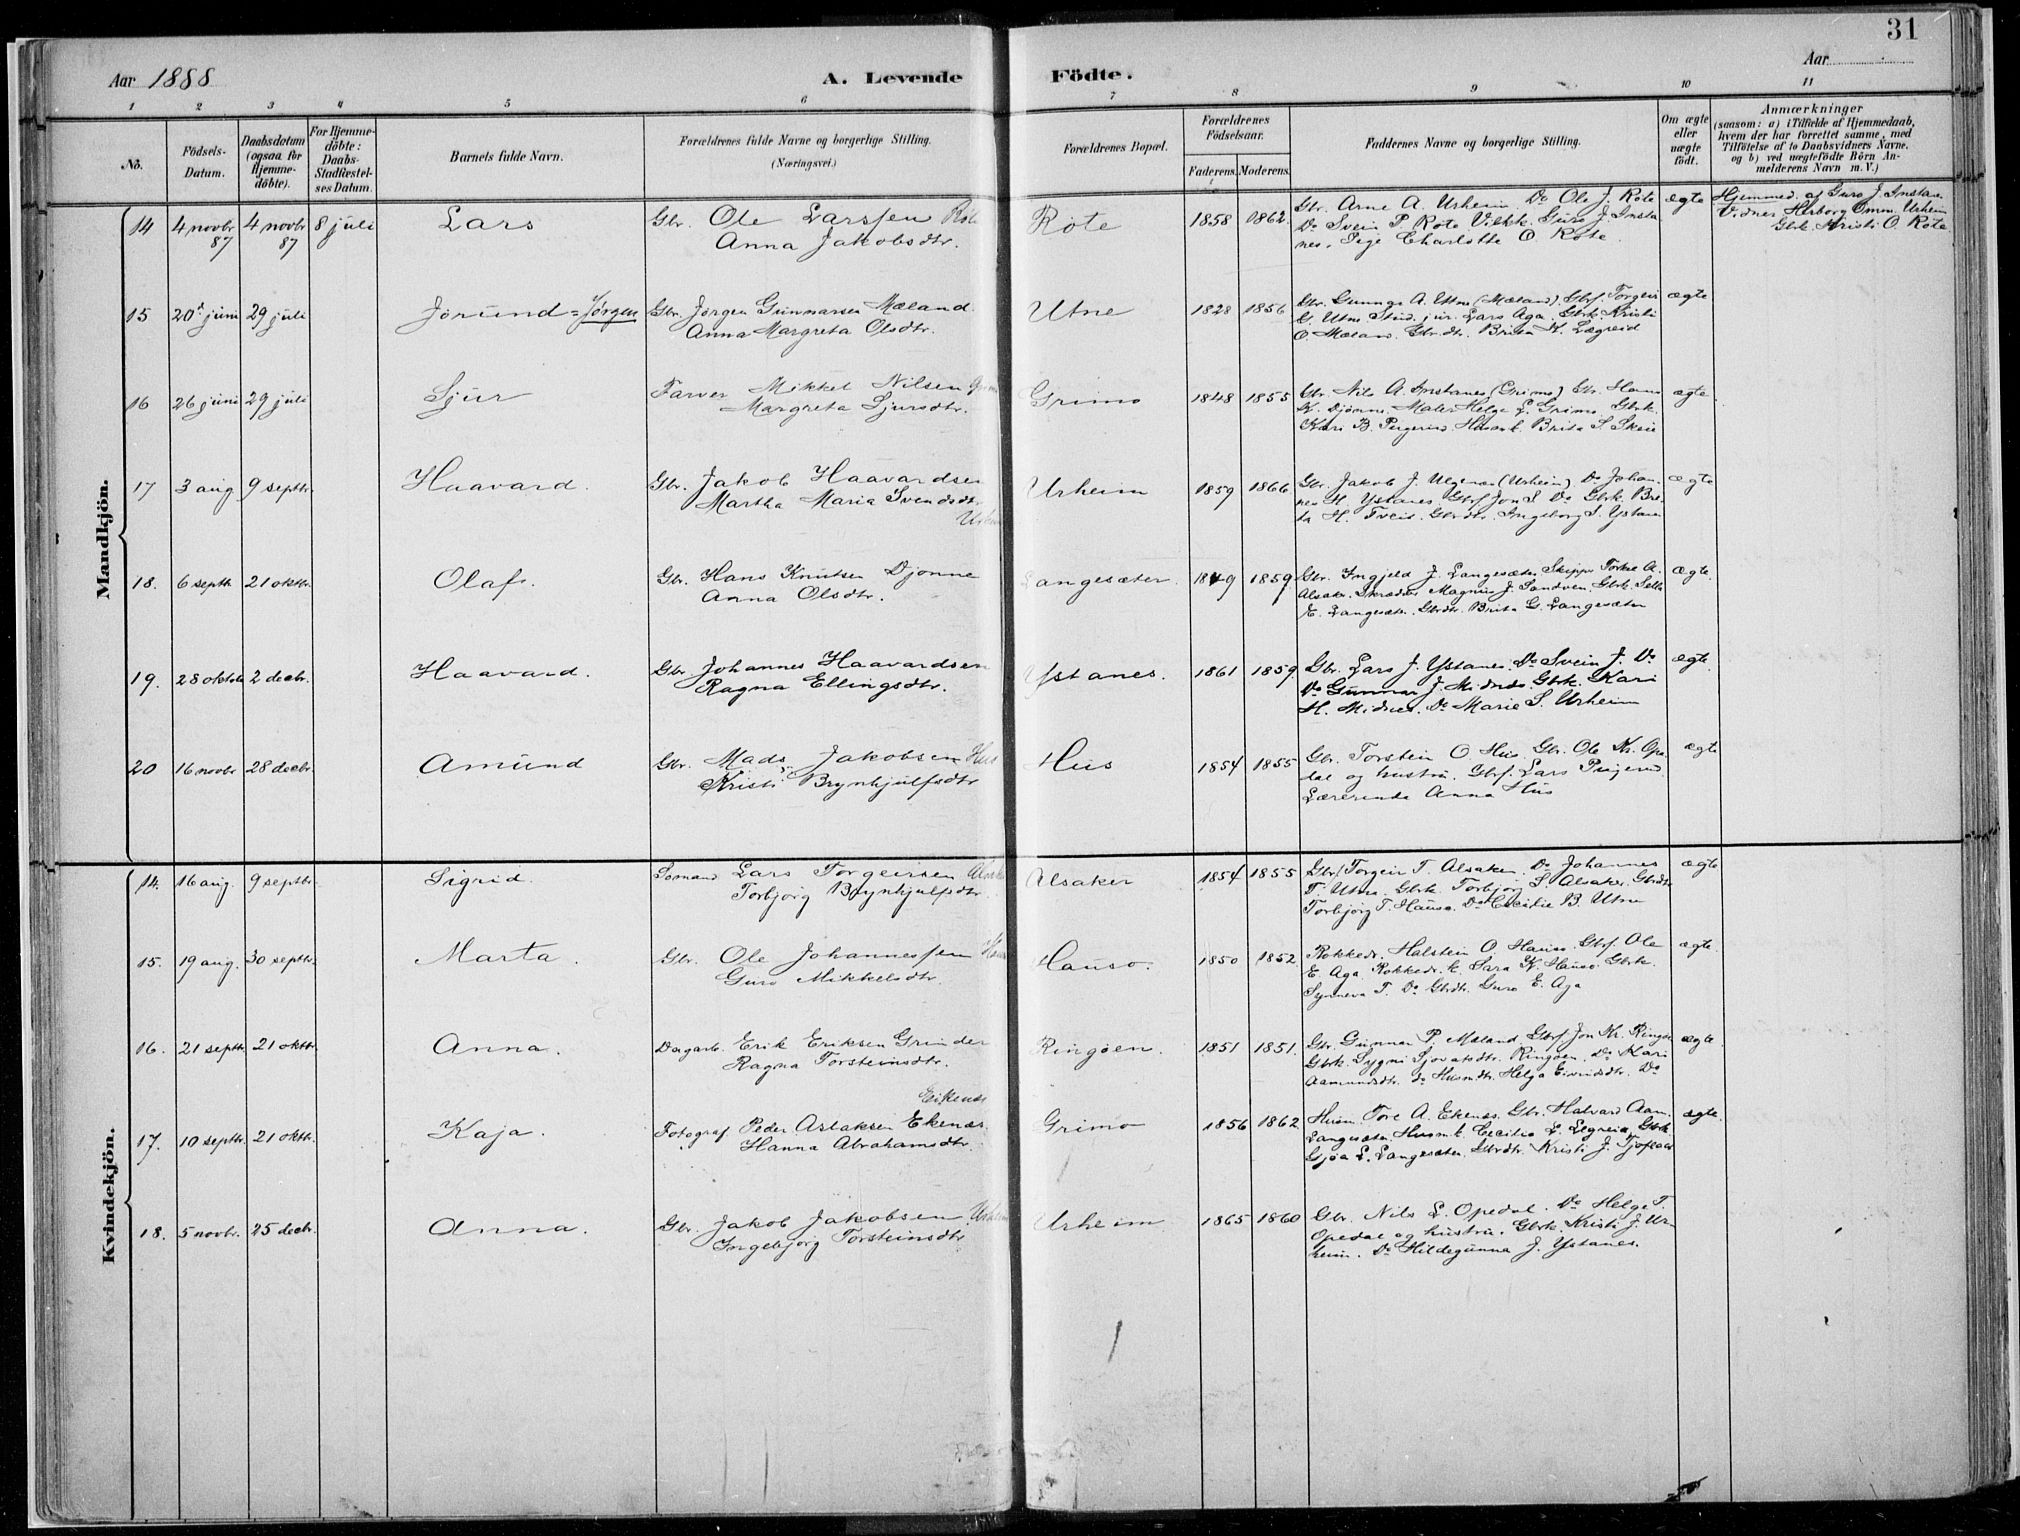 31
Aar 1888
A. Levende Födte.
Aar
1 2 3 4 5 6 7 8 9 10 11
No.
Födsels-Datum.
Daabsdatum (ogsaa for Hjemmedöbte).
For Hjemmedöbte: Daabs-Stadfæstelses Datum.
Barnets fulde Navn.
Forældrenes fulde Navne og borgerlige Stilling. (Næringsvei.)
Forældrenes Bopæl.
Forældrenes Födselsaar.
Faderens. Moderens.
Faddernes Navne og borgerlige Stilling.
Om ægte eller uægte födt.
Anmærkninger
(saasom: a) i Tilfælde af Hjemmedaab, hvem der har forrettet samme, med Tilföielse af to Daabsvidners Navne. og b) ved uægtefödte Börn Anmelderens Navn m. V.)
Mandkjön.
14 4 novbr 87 4 novbr 87 8 juli Lars Gbr. Ole Larssen Røte
Anna Jakobsdtr.
Røte 1858 1862 Gbr. Arne A. Urheim. Do Ole J. Røte
Do Svein P. Røte Guro J. Instanes. Pige Charlotte O. Røte
ægte Hjemmed. af Guro J. Instanes
Vidner Herborg Urheim
Gbrk. Kristi O. Røte
15 20 juni 29 juli Jørund = Jørgen Gbr. Jørgen Gunnarsen Mæland
Anna Margreta Olsdtr.
Utne 1828 1856 Gbr. A. Utne (Mæland) Gbrf. Torgeir
G. Utne Stud. jur. Lars Aga. Gbrk. Kristi
O. Mæland. Gbrdtr. Brita K. Lægreid
ægte
16 26 juni 29 juli Sjur Farver Mikkel Nilsen Grimo
Margreta Sjursdtr.
Grimo 1848 1855 Gbr. Nils A. Instanes (Grimo) Gbr. Hans
K. Djønne. Maler Helge L. Grimo. Gbrk.
Kari B. Husmk. Brita S. Skeie
ægte
17 3 aug. 9 septbr. Haavard. Gbr. Jakob Haavardsen
Martha Maria Svendsdtr.
Urheim
Urheim 1859 1866 Gbr. Jakob J. (Urheim) Do Johannes
H. Ystanes Gbrf. Jon S. Do Gbrk. Brita
H. Tveit. Gbrdtr. Ingeborg S. Ystanes
ægte
18. 6 septbr. 21 oktbr. Olaf. Gbr. Hans Knutsen Djønne
Anna Olsdtr.
Langesæter. 1849 1859. Gbr. Ingjeld J. Langesæter Skipper A.
Alsaker. Skrædder Magnus J. Sandven. Gbrk.
E. Langesæter. Gbrdtr. Brita G. Langesæter
ægte.
19. 28 oktbr 2 decbr. Haavard. Gbr. Johannes Haavardsen
Ragna Ellingsdtr.
Ystanes. 1861 1859. Gbr. Lars J. Ystanes. Do Svein J. Do
Do Gunnar J. Midnes. Gbrk. Kari
H. Midnes. Do Marie S. Urheim
ægte.
20 16 novbr. 28 decbr. Amund Gbr. Mads Jakobsen Hus
Kristi Brynhjulfsdtr
Hus 1854 1855 Gbr. Torstein O Hus. Gbr. Ole Kr. Opedal
og hustru. Gbrf. Lars
Lærerinde Anna Hus
ægte
Kvindekjön.
14. 16 aug. 9 septbr. Sigrid. Sømand Lars Torgeirsen Alsaker
Torbjørg Brynhjulfsdtr.
Alsaker 1854 1855 Gbr. Torgeir T. Alsaker. Do Johannes
T. Utne. Gbrk. Torbjørg S. Alsaker. Gbrdtr
Torbjørg T. Hauso. Do Cecilie B. Utne
ægte
15. 19 aug. 30 septbr. Marta. Gbr. Ole Johannessen Hauso
Guro Mikkelsdtr.
Hauso. 1850 1852 Rokkedr. Halstein O. Hauso. Gbrf. Ole
E. Aga Rokkedr. k. Sara K. Hauso. Gbrk.
Synneva T. Do Gbrdtr. Guro E. Aga
ægte.
16. 21 septbr. 21 oktbr. Anna. Dagarb. Erik Eriksen Grinder
Ragna Torsteinsdtr.
Ringøen. 1851 1851. Gbr. Gunnar P. Mæland. Gbrf. Jon Kr. Ringøen
Gbrk. Sygni Sjovatsdtr. Ringøen. Do Kari
Aamundsdtr. do Husmdtr. Helga Eivindsdtr. Do
ægte.
17. 10 septbr. 21 oktbr. Kaja. Eikenæs
Fotograf Peder Aslaksen Ekenæs
Hanna Abrahamsdtr.
Grimo 1856 1862 Husm. Tore A. Ekenæs. Gbr. Halvard Aam.
Langesæter Husmk. Cecilie L. Legreid. Gbrk.
Gjøa L. Langesæter. Gbrdtr. Kristi J. Tjoflaat
ægte.
18. 5 novbr. 25 decbr. Anna. Gbr. Jakob Jakobsen Urheim
Ingebjørg Torsteinsdtr
Urheim 1865 1860 Gbr. Nils L. Opedal. Do Helge T.
Opedal og hustru. Gbrk. Kristi J. Urheim.
Do Hildegunna J. Ystanes.